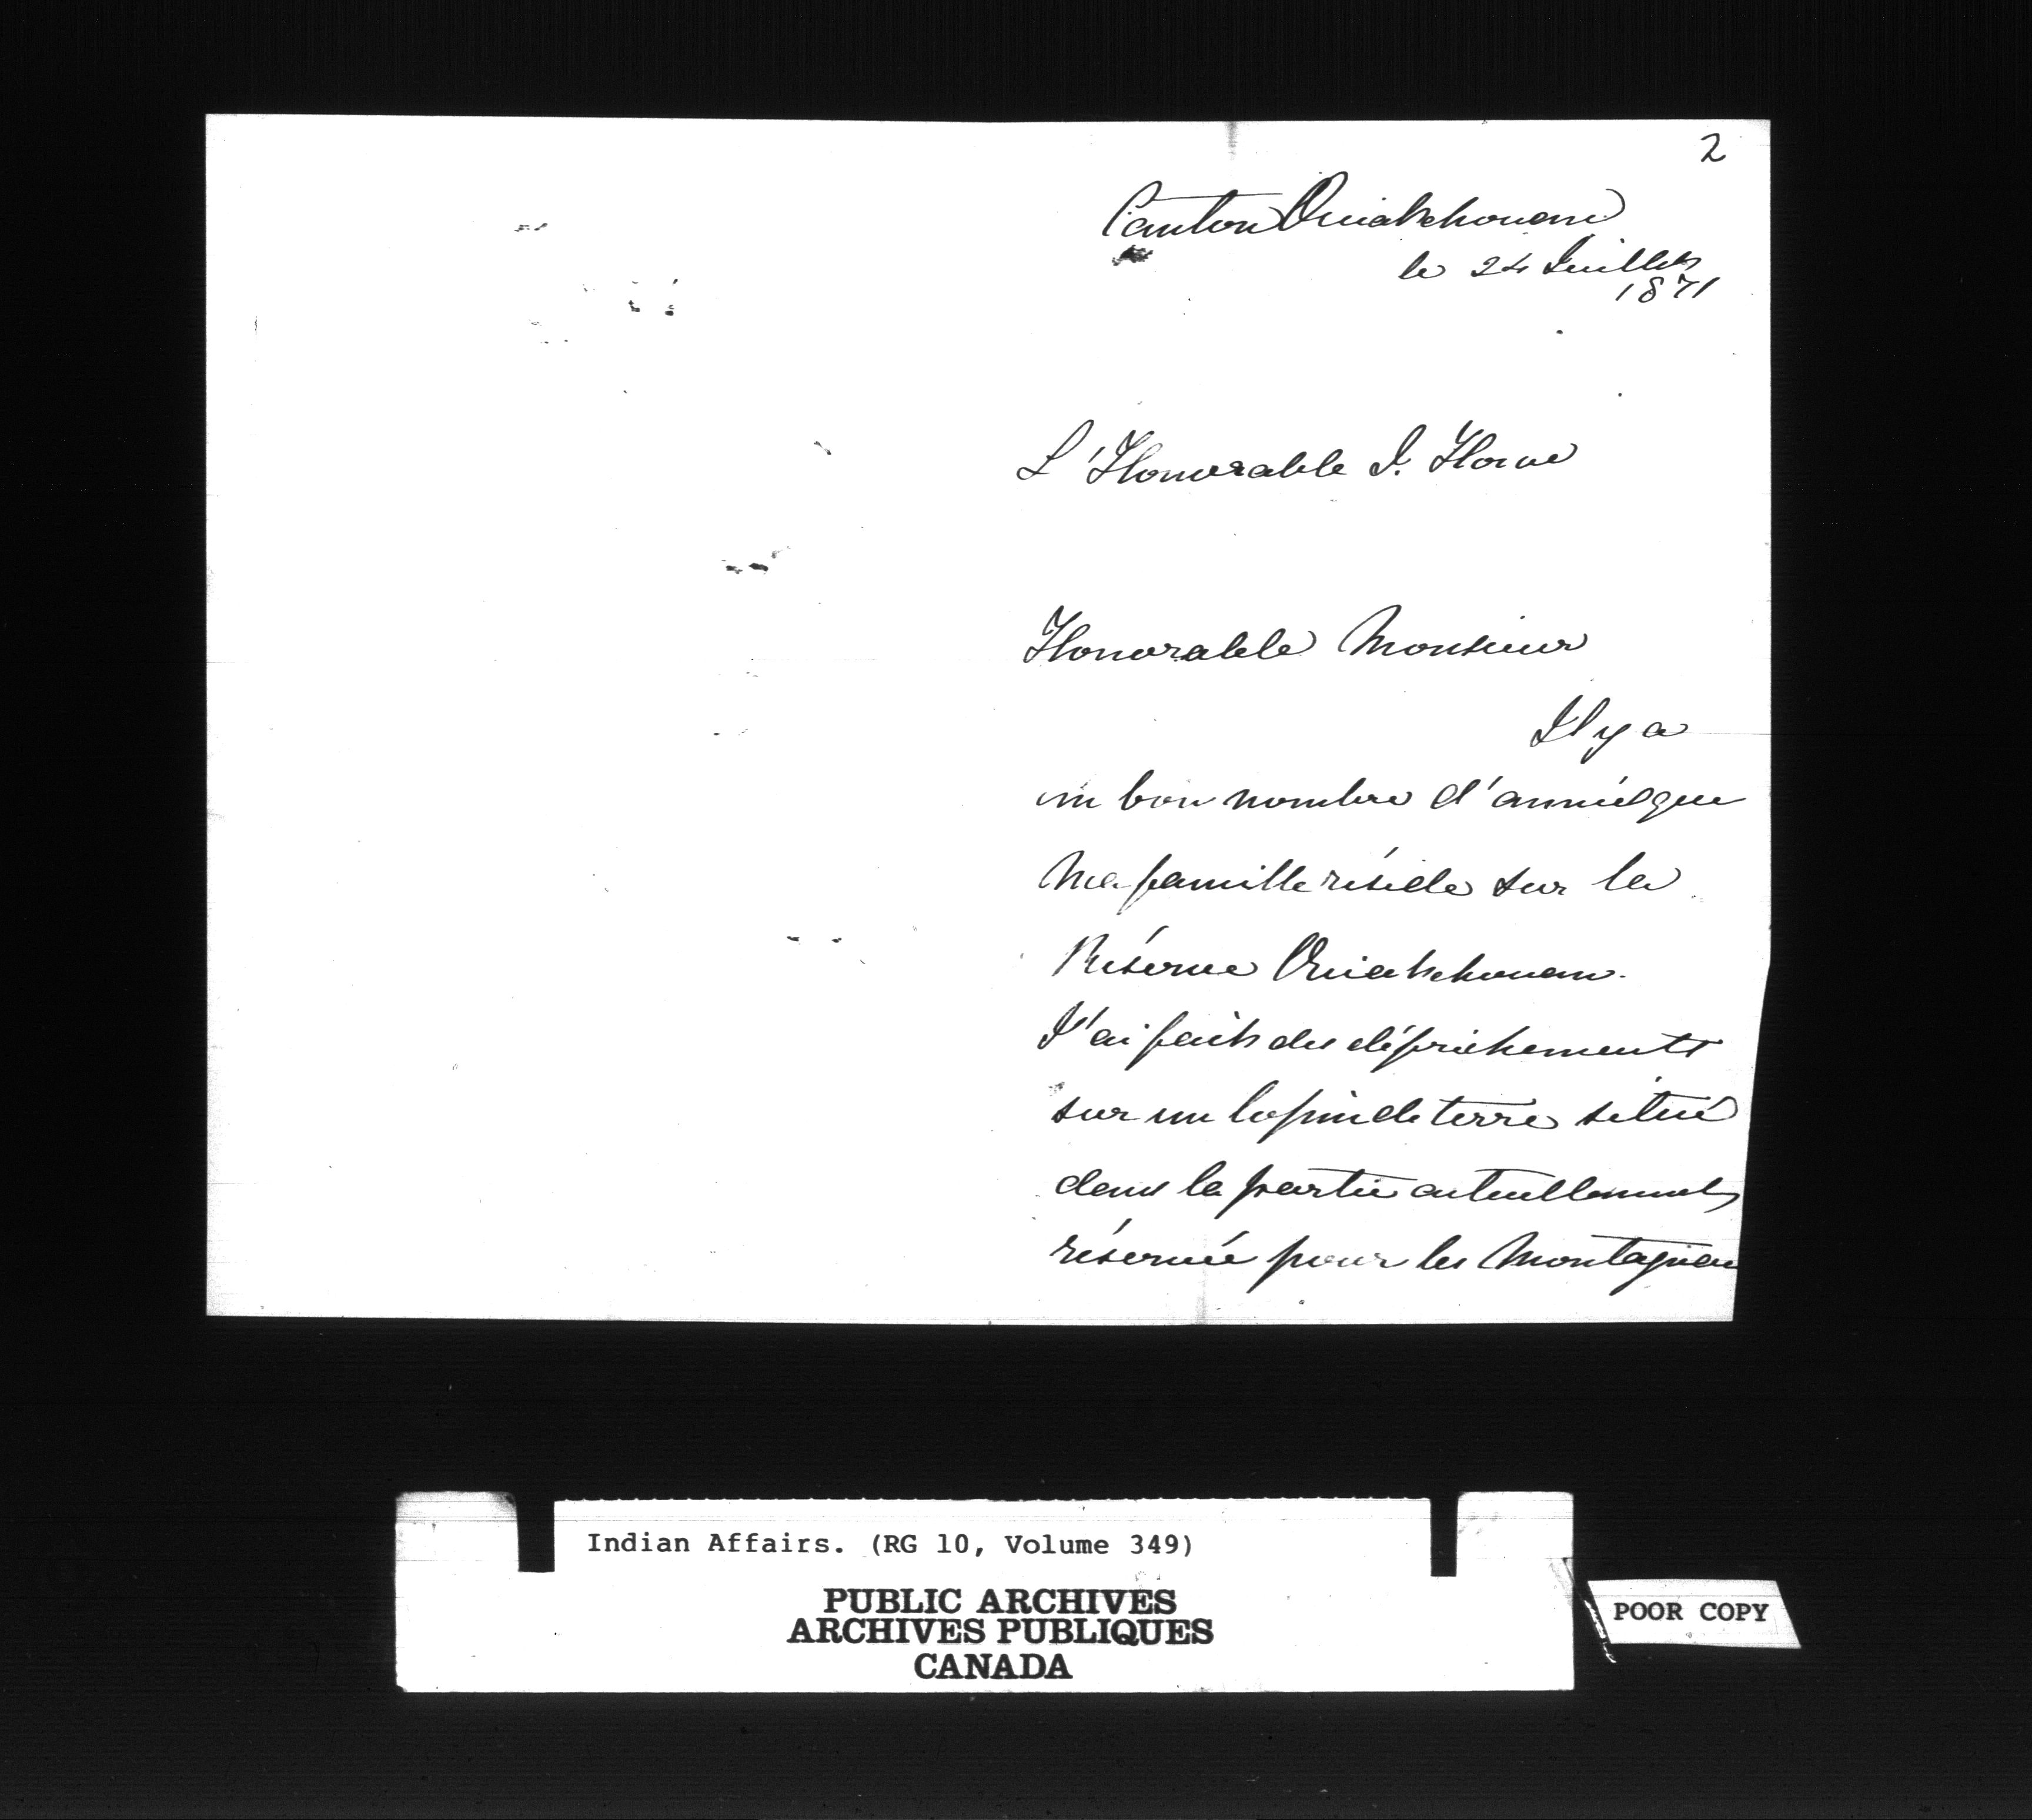 2
Canton Ouiatchouan
le 24 Juillet
1871
L'Honorable J. Howe
Honorable Monsieur
Il y a
un bon nombre d'années que
ma famille réside sur la
Réserve Ouiatchouan.
J'ai fait des défrichements
sur un lopin de terre situé
dans la partie actuellement
réservée pour les Montagnai
Indian Affairs. (RG 10, Volume 349)
PUBLIC ARCHIVES
ARCHIVES PUBLIQUES
CANADA
POOR COPY